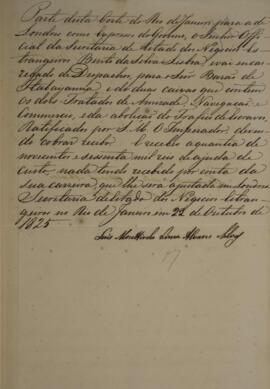 Parte desta Corte do Rio de Janeiro para a de
Londres como Expresso do Governo, o Senhor Offi-
cial da Secretaria de Estado dos Negocios Es-
trangeiros Bento da Silva Lisboa, e vai encar-
regado de Despachos para o Senr Barão de
Itabayanna, e de duas caixas que contem
os dois Tratados de Amizade, Navegação e
Commercio, e da abolição do Trafico de Escravos,
Ratificados por S. M. O Imperador, de
cobrar recibo. E recebeo a quantia de
novecentos e sessenta mil reis de ajuda de
custo, nada tendo recebido por conta da
sua carreira, que lhe será ajustada em Londres
Secretaria de Estado dos Negocios Estran-
geiros no Rio de Janeiro em 22 de Outubro de
1825
Luis Moutinho Lima Alvares e Silva